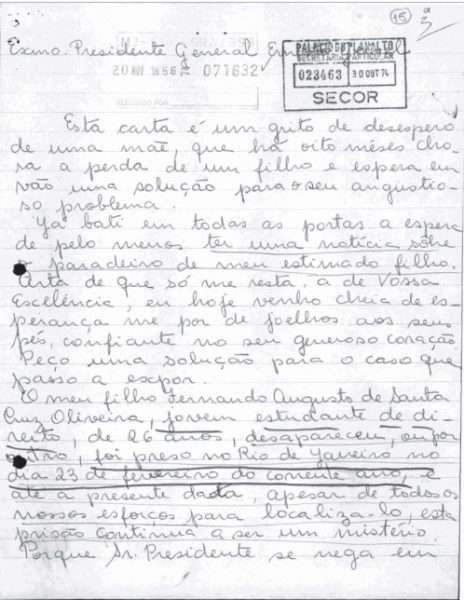 15
Exmo. Presidente General
20 NOV 1556 071632
PALACIO DO PLANALTO
SECRETARIA PARTICULAR
023463 30 OUT 74
SECOR
Esta carta é um grito de desespero
de uma mãe, que há oito mêses cho-
ra a perda de um filho e espera em
vão uma solução para o seu angustio-
so problema.
Já bati em todas as portas a espera
de pelo menos ter uma notícia sôbre
o paradeiro de meu estimado filho.
Certa de que só me resta, a de Vossa
Excelência, eu hoje venho cheia de es-
perança me por de joelhos aos seus
pés, confiante no seu generoso coração.
Peço uma solução para o caso que
passo a expor.
O meu filho Fernando Augusto de Santa
Cruz Oliveira, jovem estudante de di-
reito, de 26 anos, desapareceu, ou por
outro, foi preso no Rio de Janeiro no
dia 23 de fevereiro do corrente ano, e
até a presente data, apesar de todos os
nossos esforços para localiza-lo, esta
prisão continua a ser um mistério.
Porque Sr. Presidente se nega em